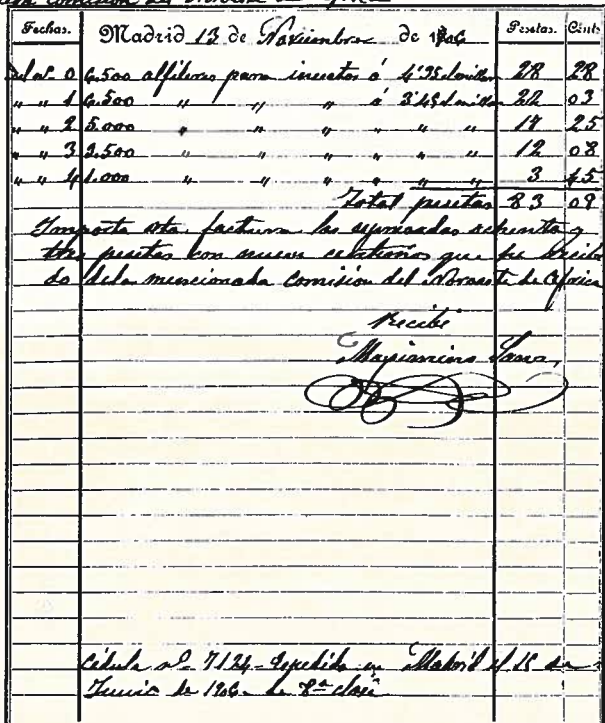 Comision del Noroeste de Africa
Fechas. Madrid 13 de Noviembre de 1906 Pesetas. Cénts
Del nº 0 6.500 alfileres para insectos á 4'35 el millar 28 28
" " 1 6.500 " " " á 3'45 el millar 22 03
" " 2 5.000 " " " " " " 17 25
" " 3 3.500 " " " " " " 12 08
" " 4 1.000 " " " " " " 3 45
Total pesetas 83 09
Importa esta factura las espresadas ochenta y
tres pesetas con nueve centimos que he recibi
do dela mencionada Comision del Noroeste de Africa
Recibí
Maximino Sanz
Cédula nº 7124 - Espedida en Madrid el 15 de
Junio de 1906 de 8ª clase